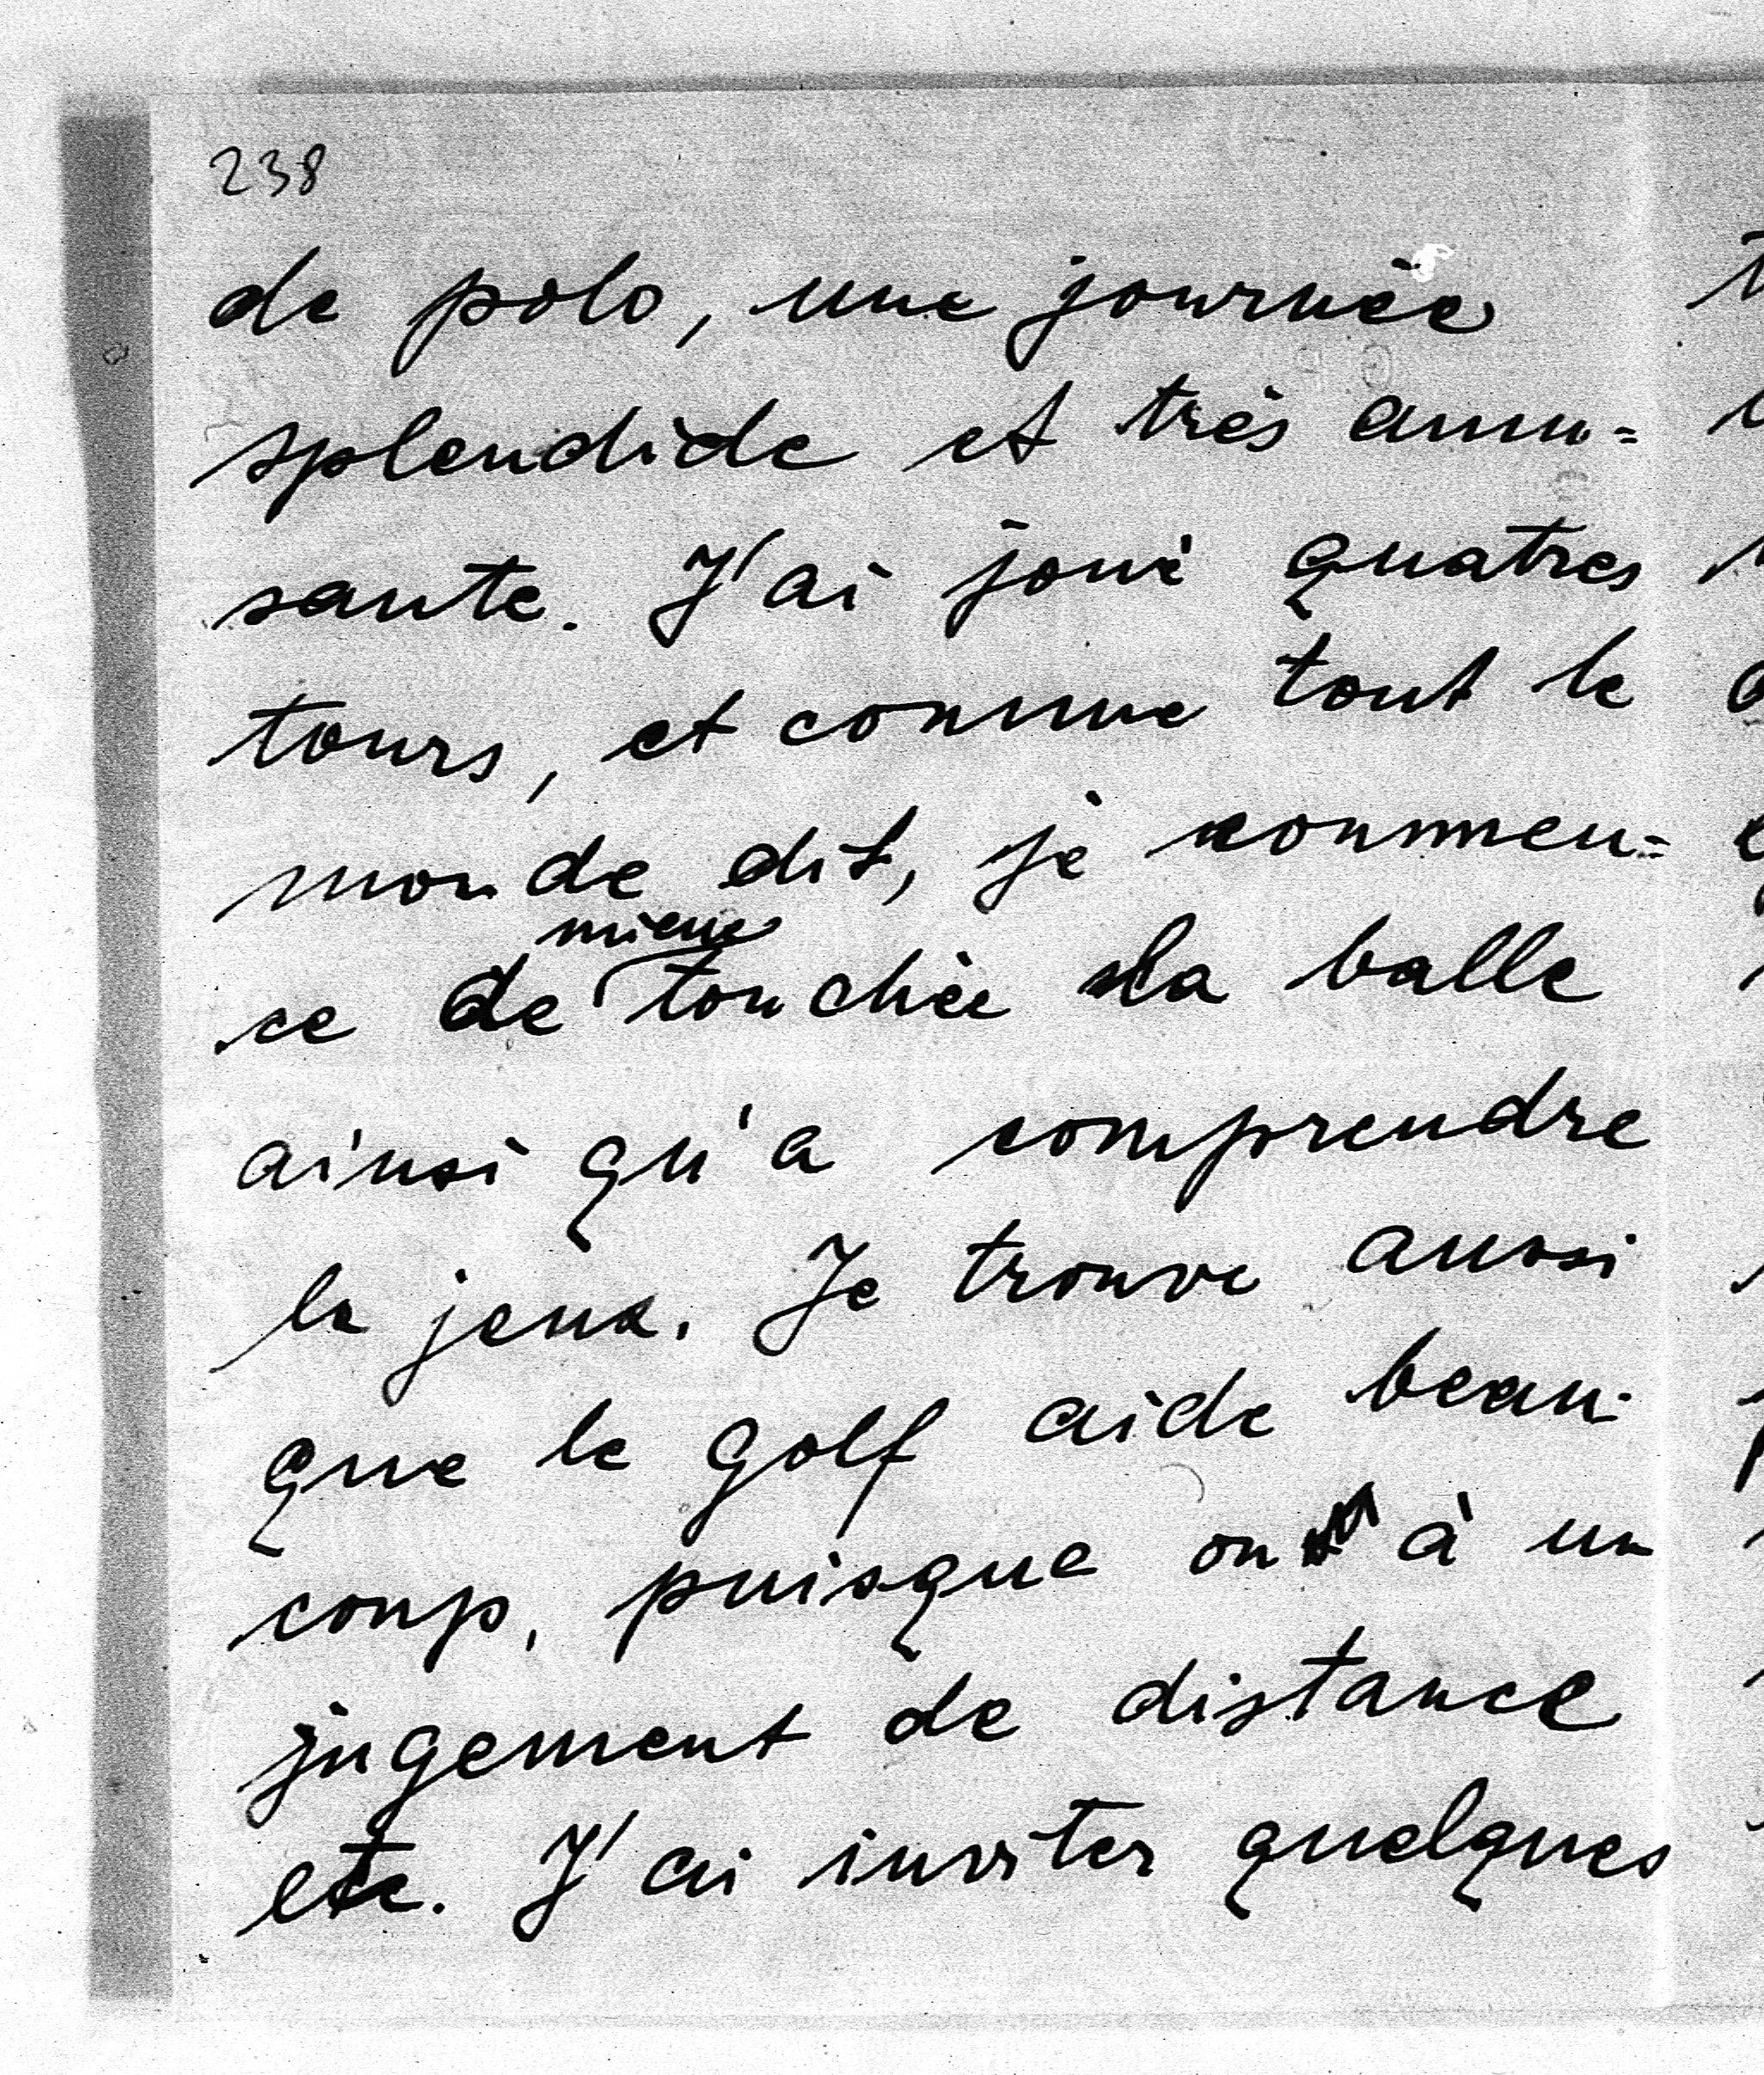 238
de polo, une journée
splendide et très amu=
sante. J'ai joué quatres
tours, et comme tout le
monde dit, je commen=
mieux
ce de touchée la balle
ainsi qu'a comprendre
le jeux. Je trouve aussi
que le golf aide beau-
coup, puisque on à un
jugement de distance
etc. J'ai inviter quelques